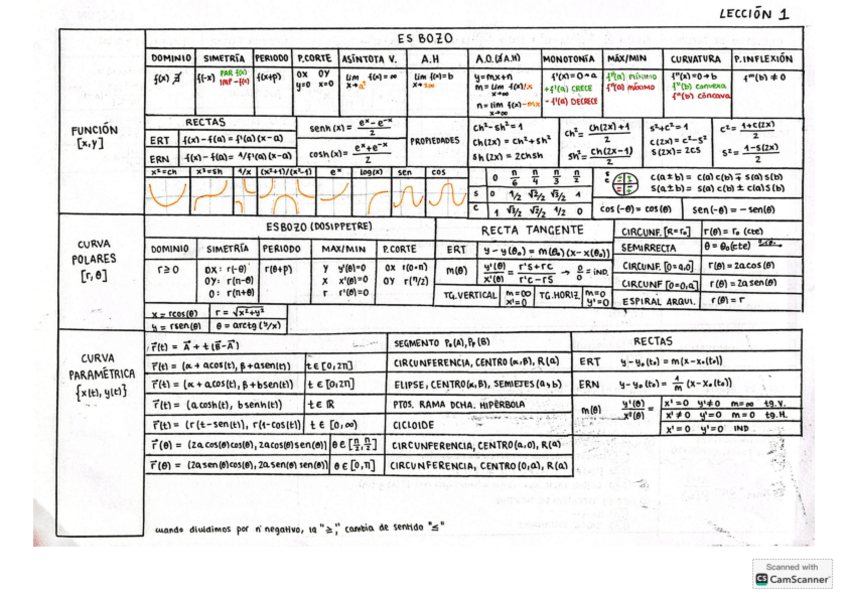 LECCIÓN 1
ESBOZO
DOMINIO SIMETRÍA PERIODO P.CORTE ASÍNTOTA V. A.H A.O.(∄A.H) MONOTONÍA MÁX/MIN CURVATURA P.INFLEXIÓN
f(x) ∄ f(-x) PAR f(x) IMP -f(x) f(x+p) OX y=0 OY x=0 lim x→a f(x)=∞ lim x→±∞ f(x)=b y=mx+n m=lim x→∞ f(x)/x n=lim x→∞ f(x)-mx f'(x)=0→a +f'(a) CRECE -f'(a) DECRECE f''(a) MÍNIMO f''(a) MÁXIMO f''(x)=0→b f''(b) convexa f''(b) cóncava f'''(b)≠0
FUNCIÓN
[x,y]
RECTAS
ERT f(x)-f(a)=f'(a)(x-a)
ERN f(x)-f(a)=1/f'(a)(x-a)
senh(x)= (e^x-e^-x)/2
cosh(x)= (e^x+e^-x)/2
PROPIEDADES
ch²-sh²=1
ch(2x)=ch²+sh²
sh(2x)=2chsh
ch²= (ch(2x)+1)/2
sh²= (ch(2x)-1)/2
s²+c²=1
c(2x)=c²-s²
s(2x)=2cs
c²= (1+c(2x))/2
s²= (1-s(2x))/2
x²=ch x³=sh 1/x (x²+1)/(x²-1) e^x log(x) sen cos
0 π/6 π/4 π/3 π/2
s 0 1/2 √2/2 √3/2 1
c 1 √3/2 √2/2 1/2 0
c(a±b)=c(a)c(b)∓s(a)s(b)
s(a±b)=s(a)c(b)±c(a)s(b)
cos(-θ)=cos(θ) sen(-θ)=-sen(θ)
CURVA
POLARES
[r,θ]
ESBOZO (DOSIPPETRE)
DOMINIO SIMETRÍA PERIODO MAX/MIN P.CORTE
r≥0
OX: r(-θ)
OY: r(π-θ)
O: r(π+θ)
r(θ+p)
y y'(θ)=0
x x'(θ)=0
r r'(θ)=0
OX r(0+π)
OY r(π/2)
x=rcos(θ) r=√x²+y²
y=rsen(θ) θ=arctg(y/x)
RECTA TANGENTE
ERT y-y(θ₀)=m(θ₀)(x-x(θ₀))
m(θ) y'(θ)/x'(θ) = (r's+rc)/(r'c-rs) → 0/0=IND.
TG.VERTICAL m=∞ x'=0 TG.HORIZ m=0 y'=0
CIRCUNF. [R=r₀] r(θ)=r₀ (cte)
SEMIRRECTA θ=θ₀(cte)
CIRCUNF. [O=a,0] r(θ)=2acos(θ)
CIRCUNF [O=0,a] r(θ)=2asen(θ)
ESPIRAL ARQUI. r(θ)=r
CURVA
PARAMÉTRICA
{x(t), y(t)}
r⃗(t)=A⃗+t(B⃗-A⃗) SEGMENTO P₀(A),Pf(B)
r⃗(t)=(α+acos(t), β+asen(t)) t∈[0,2π] CIRCUNFERENCIA, CENTRO(α,β), R(a)
r⃗(t)=(α+acos(t), β+bsen(t)) t∈[0,2π] ELIPSE, CENTRO(α,β), SEMIEJES(a,b)
r⃗(t)=(acosh(t), bsenh(t)) t∈ℝ PTOS. RAMA DCHA. HIPÉRBOLA
r⃗(t)=(r(t-sen(t)), r(1-cos(t)) t∈[0,∞) CICLOIDE
r⃗(θ)=(2acos(θ)cos(θ), 2acos(θ)sen(θ)) θ∈[π/2,π/2] CIRCUNFERENCIA, CENTRO(a,0), R(a)
r⃗(θ)=(2asen(θ)cos(θ), 2asen(θ)sen(θ)) θ∈[0,π] CIRCUNFERENCIA, CENTRO(0,a), R(a)
RECTAS
ERT y-y₀(t₀)=m(x-x₀(t₀))
ERN y-y₀(t₀)=1/m(x-x₀(t₀))
m(θ) y'(θ)/x'(θ) =
x'=0 y'≠0 m=∞ tg.V.
x'≠0 y'=0 m=0 tg.H.
x'=0 y'=0 IND
cuando dividimos por nº negativo, la "≥" cambia de sentido "≤"
Scanned with
CS CamScanner